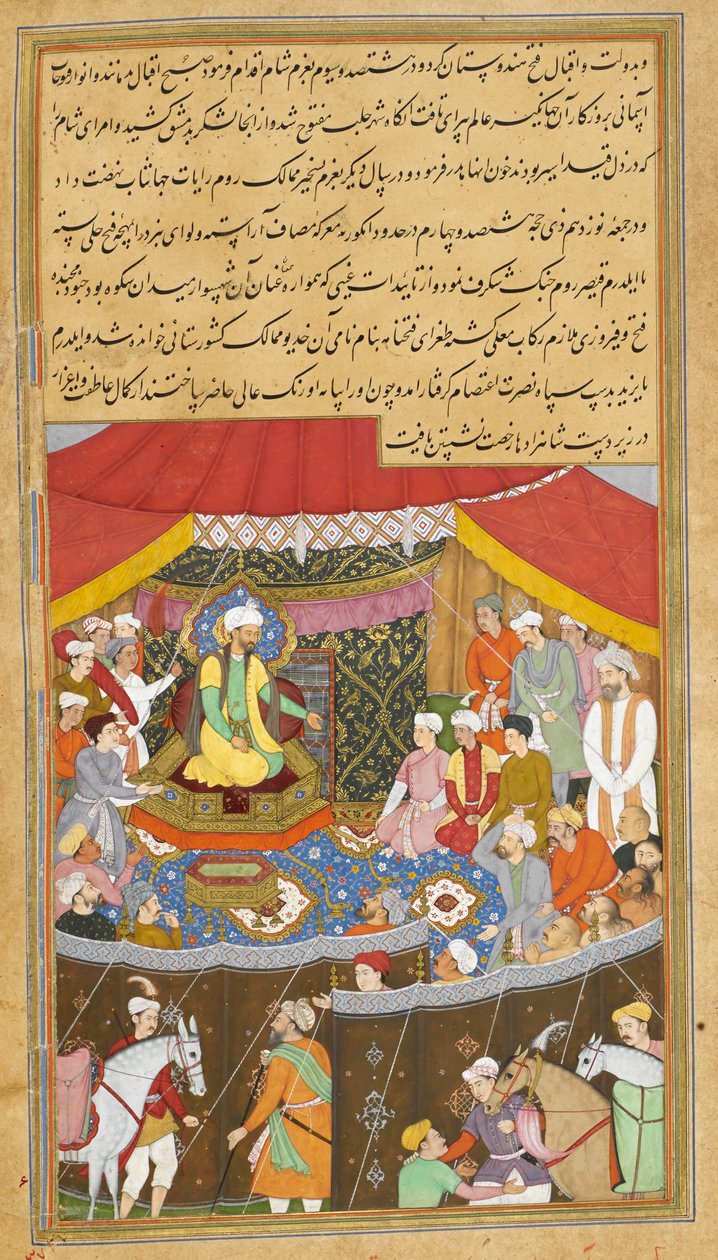 و بدولت و اقبال فتح هندوستان کرد و در هشتصد و سیوم بعزم شام اقدام فرمود صبح اقبال بدمانند و انوار فتوحات
آسمانی بر روزکار آن جهانکیر عالم پیرای تافت آنکاه شهر حلب مفتوح شد و از آنجا لشکر بدمشق کشید و امرای شام را
که در ذل قید اسیر بودند خون آنها هدر فرمود و در سال دیکر بعزم تسخیر ممالک روم رایات جهانتاب نهضت داد
و در جمعهٔ نوزدهم ذی حجه هشتصد و چهارم در حدود انکوریه معرکهٔ مصاف آراسته و لوای نبرد را بمهچهٔ فتح حلی بسته
با ایلدرم قیصر روم جنک شکرف نمود و از تائیدات غیبی که همواره همعنان آن شهسوار میدان شکوه بود جنود مجنده
فتح و فیروزی ملازم رکاب معلی کشته طغرای فتحنامه بنام نامی آن خدیو ممالک کشورستانی خوانده شد و ایلدرم
بایزید بدست سپاه نصرت اعتصام کرفتار آمد و چون او را بپایه اورنک عالی حاضر ساختند از کمال عاطفت و اعزاز
در زیر دست شاهزادها رخصت نشستن یافت